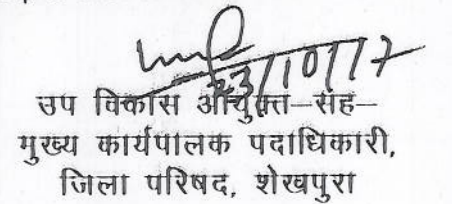 23/10/17
उप विकास आयुक्त–सह–
मुख्य कार्यपालक पदाधिकारी,
जिला परिषद, शेखपुरा